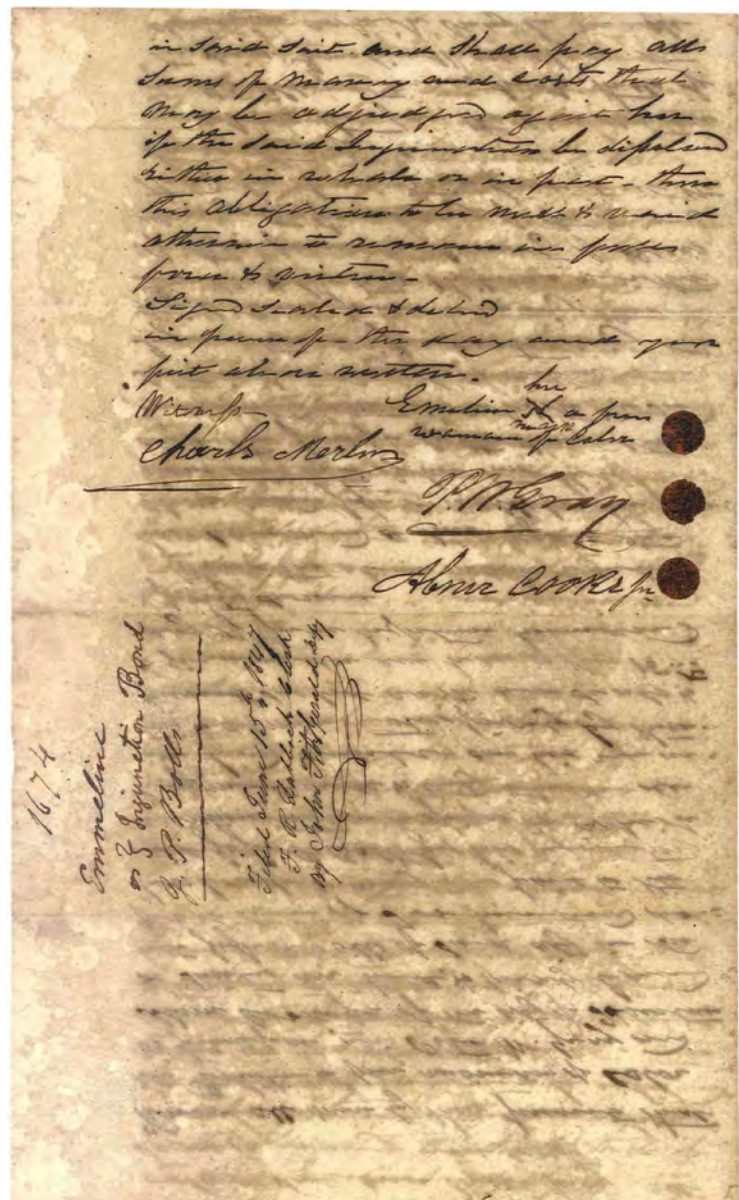 in said suit and shall pay all
sums of money and costs that
may be adjudged against her
if the said Injunction be dissolved
either in whole or in part - then
this obligation to be null & void
otherwise to remain in full
force & virtue -
Signed sealed & deld
in presence of - the day and year
first above written.
Witness
Charles Merlin
her
Emeline X a free
mark
woman of color
P. W. Gray
Abner Cooke jr
1674
Emmeline
vs } Injunction Bond
J. P. Bolls
Filed June 15th 1847
F. R. Lubbock Clerk
By John Fitzgerald dpy